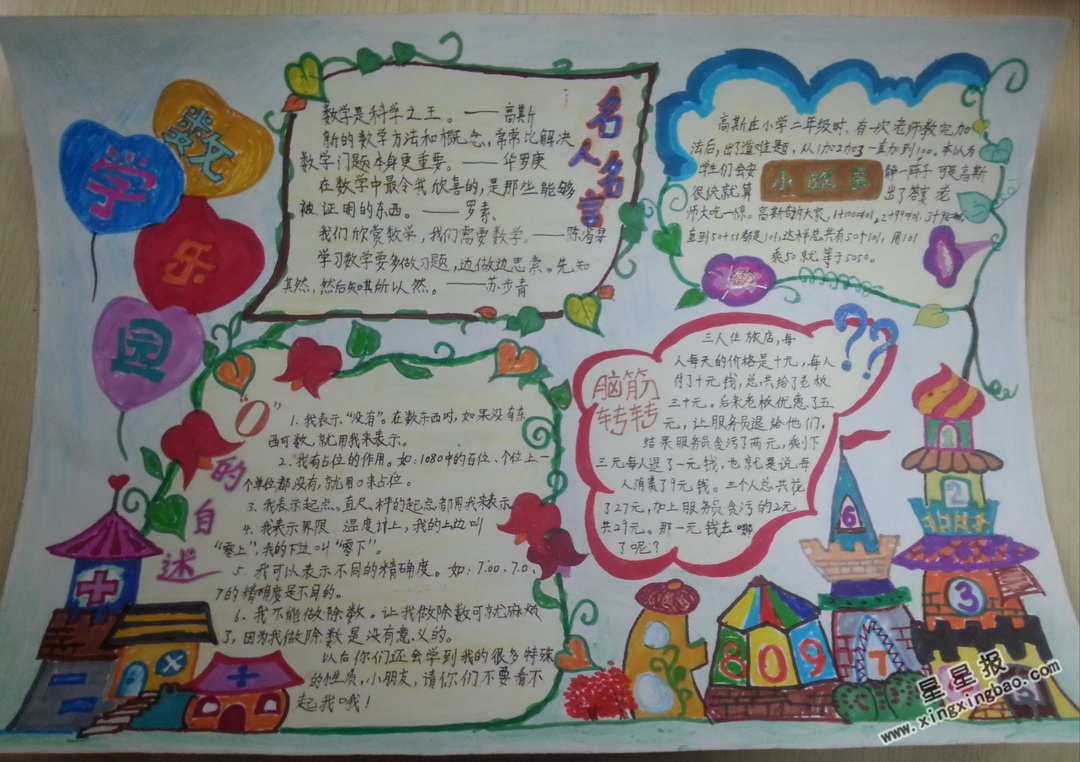 数学乐园
名人名言
数学是科学之王。——高斯
新的数学方法和概念,常常比解决
数学问题本身更重要。——华罗庚
在数学中最令我欣喜的,是那些能够
被证明的东西。——罗素
我们欣赏数学,我们需要数学。——陈省身
学习数学要多做习题,边做边思索。先知
其然,然后知其所以然。——苏步青
高斯在小学二年级时,有一次老师教完加
法后,出了道难题,从1加2加3一直加到100。本认为
学生们会安静一阵子 可是高斯
很快就算出了答案 老
师大吃一惊。高斯告诉大家,1+100=101,2+99=101,
直到50+51都是101,这样总共有50个101,用101
乘50就等于5050。
小故事
脑筋
转转
??
三人住旅店,每
人每天的价格是十元,每人
付了十元钱,总共给了老板
三十元。后来老板优惠了五
元,让服务员退给他们,
结果服务员贪污了两元,剩下
三元每人退了一元钱,也就是说,每
人消费了9元钱。三个人总共花
了27元,加上服务员贪污的2元
共29元。那一元钱去哪
了呢?
“0”的自述
1.我表示“没有”。在数东西时,如果没有东
西可数,就用我来表示。
2.我有占位的作用。如:1080中的百位、个位上一
个单位都没有,就用0来占位。
3.我表示起点。直尺、秤的起点都用我来表示
4.我表示界限 温度计上,我的上边叫
“零上”,我的下边叫“零下”。
5.我可以表示不同的精确度。如:7.00、7.0、
7的精确度是不同的。
6.我不能做除数。让我做除数可就麻烦
了,因为我做除数是没有意义的。
以后你们还会学到我的很多特殊
的性质,小朋友,请你们不要看不
起我哦!
+
×
−
÷
=
1
2
3
6
8
0
9
7
星星报
www.xingxingbao.com